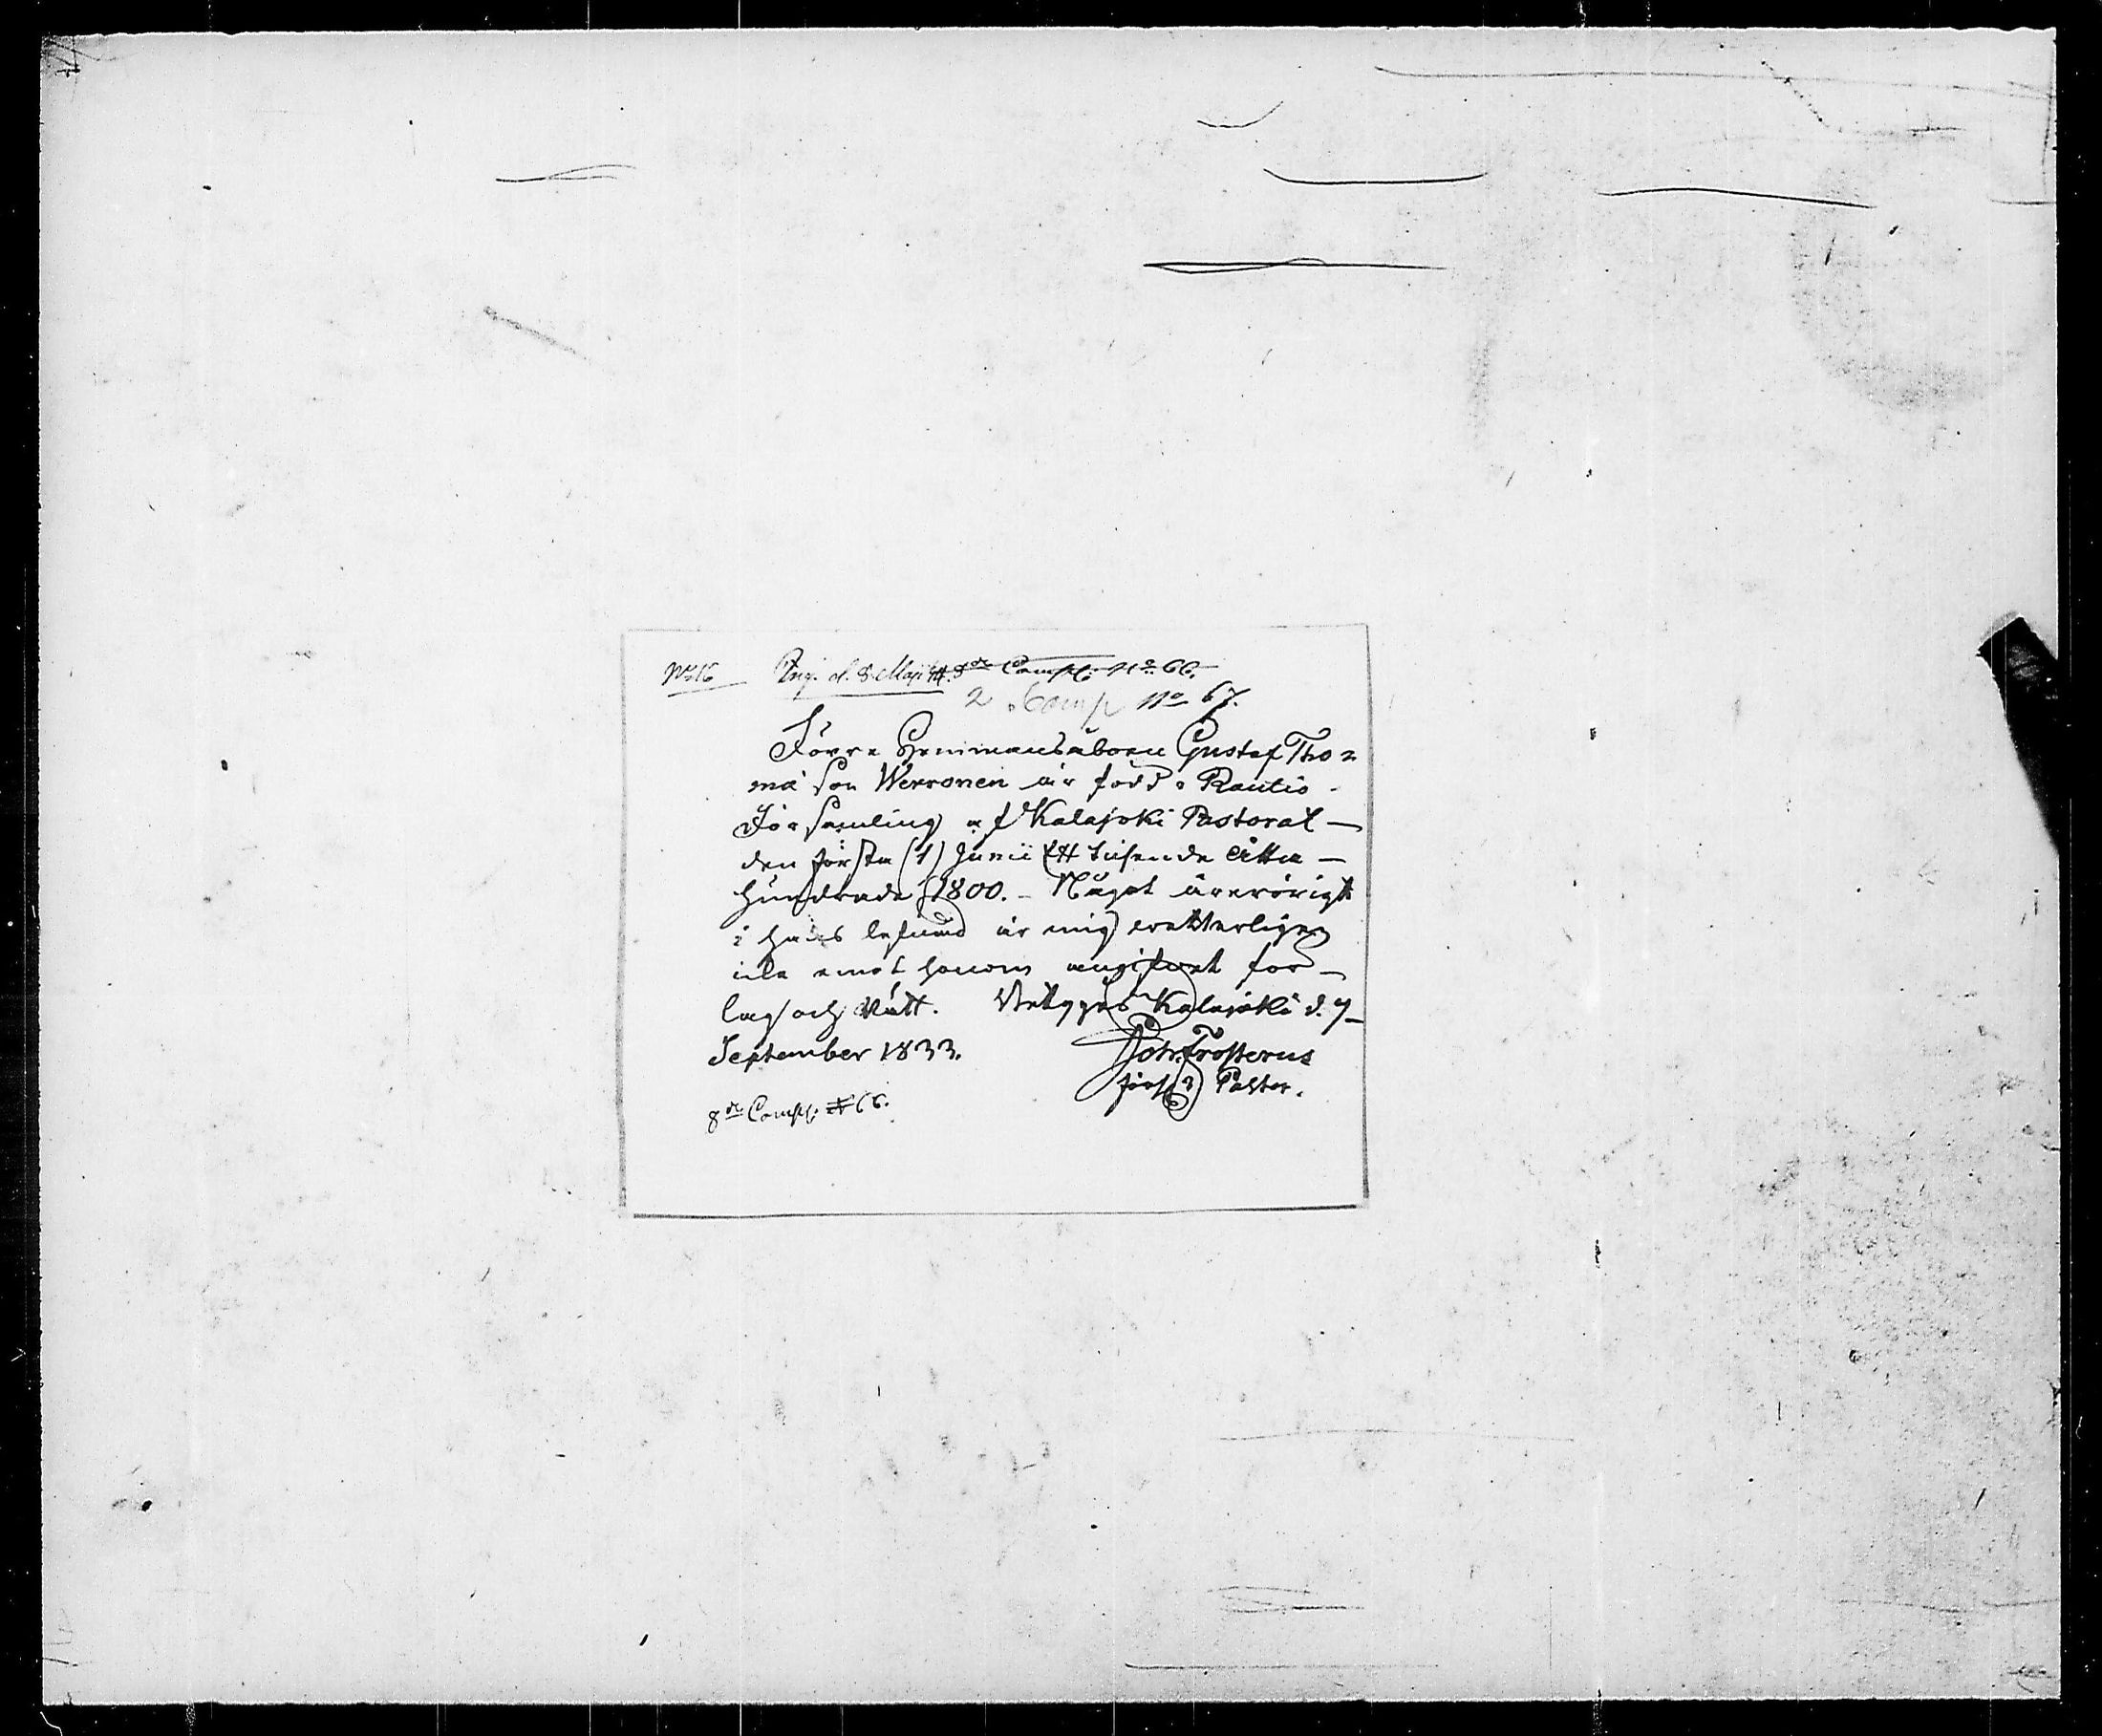 No 16 Ing. d. 8 Maji 44. 8de Comp: No 66.
2 Comp No 67.
Förre Hemmansåboen Gustaf Tho=
mæ Son Werronen är född i Rautio
Församling af Kalajoki Pastorat —
den första (1) Junii Ett tusende Åtta —
hundrade (1800. - Något ärerörigt
i hans lefnad är mig wetterligen
icke emot honom angifwet för —
lag och Rätt. Betygas Kalajoki d. 7
September 1833. Joh. Frosterus
Pastor.
8de Comp: # 66.